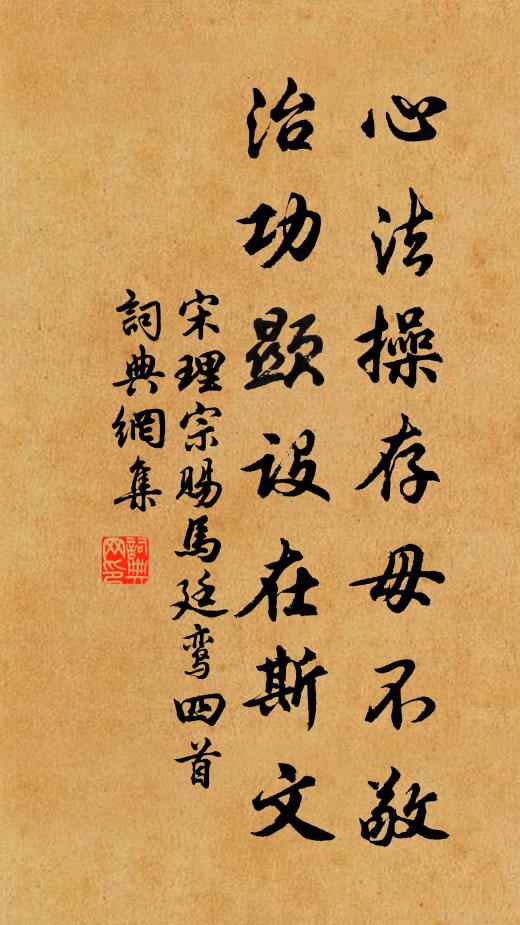 心法操存毋不敬
治功顯設在斯文
宋理宗賜馬廷鸾四首
詞典網集
詞典网印